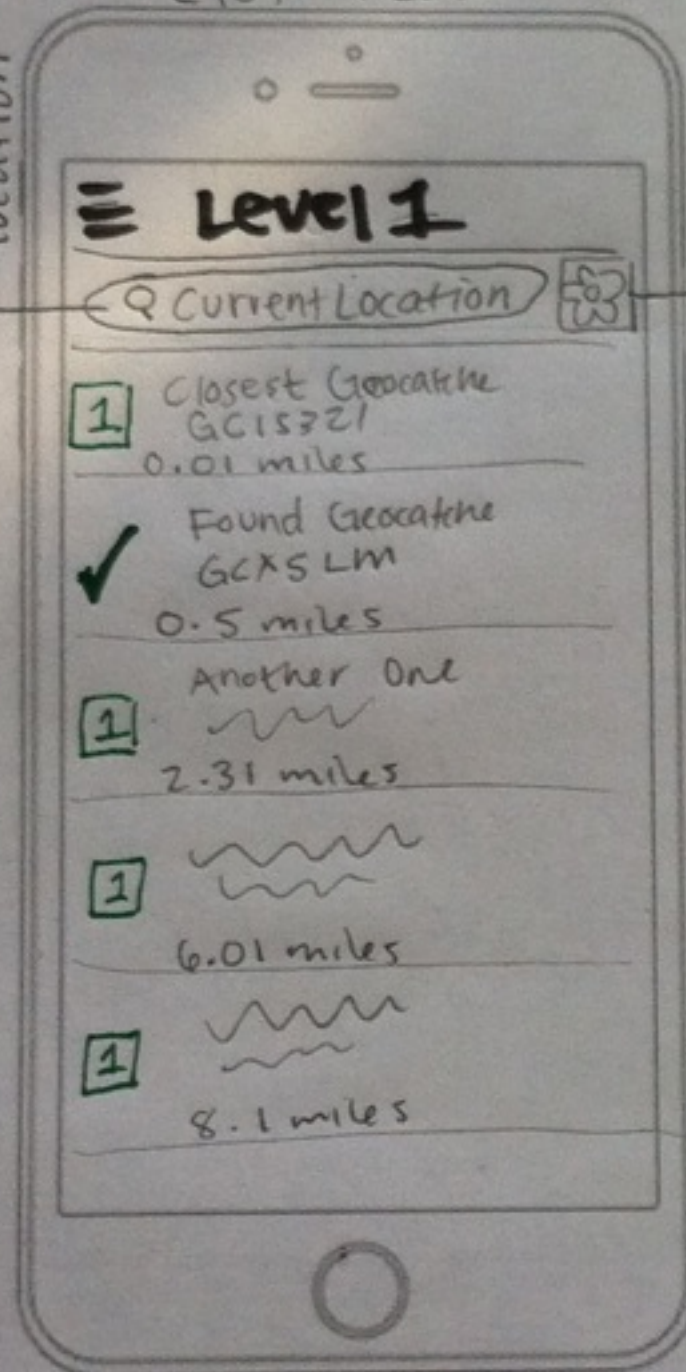 Level 1
Current Location
1 Closest Geocatche
GC15321
0.01 miles
Found Geocatche
GCX5LM
0.5 miles
Another One
1
2.31 miles
1
6.01 miles
1
8.1 miles